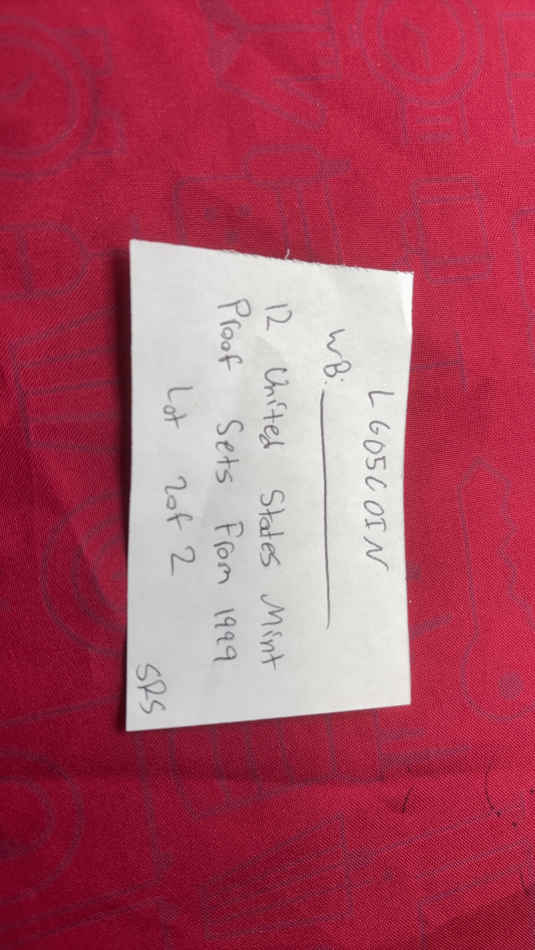 L605COIN
WB: ___________
12 United States Mint
Proof Sets From 1999
Lot 2 of 2
SRS